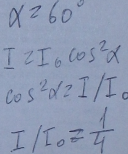 α = 60°
I = I₀ cos²α
cos²α = I/I₀
I/I₀ = 1/4